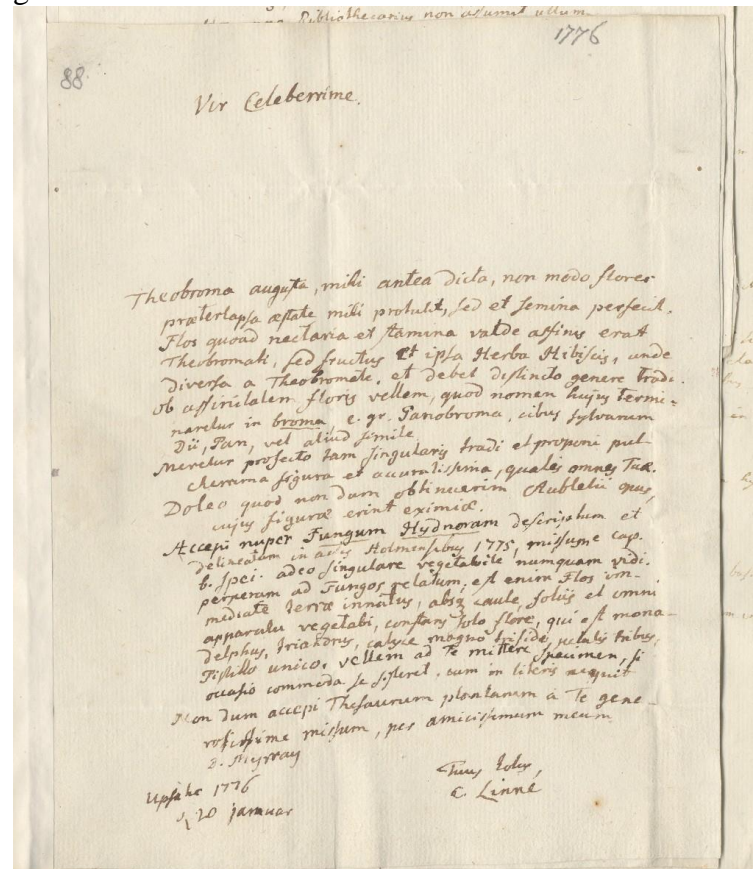 Bibliothecarius non assumit ullum
1776
88
Vir Celeberrime.
Theobroma augusta, mihi antea dicta, non modo flores
præterlapsa æstate mihi protulit, sed et semina perfecit.
Flos quoad nectaria et stamina valde affinis erat
Theobromati, sed fructus et ipsa Herba Hibiscis, unde
diversa a Theobromate, et debet distincto genere tradi.
ob affinitatem floris vellem, quod nomen hujus termi-
naretur in broma, e. gr. Panobroma, cibus sylvarum
Dii, Pan, vel aliud simile
Meretur profecto tam singularis tradi et proponi pul-
cherrima figura et accuratissima, quales omnes Tuæ.
Doleo quod non dum obtinuerim Aubletii opus,
cujus figuræ erint eximiæ.
Accepi nuper Fungum Hydnoram descriptum et
delineatum in actis Holmensibus 1775, missum e cap.
b. spei. adeo singulare vegetabile numquam vidi.
perperam ad Fungos relatum, est enim Flos im-
mediate terræ innatus, absq caule, foliis et omni
apparatu vegetabi, constans solo flore, qui est mona-
delphus, triandrus, calyce magno trifido, petalis tribus,
Pistillo unico, vellem ad Te mittere specimen, si
occasio commoda se sisteret, cum in literis nequit
Non dum accepi Thesaurum plantarum à Te gene-
rosissime missum, per amicissimum meum
D. Myrray
Upsalic 1776
d 20 januar
Tuus totus,
C. Linné